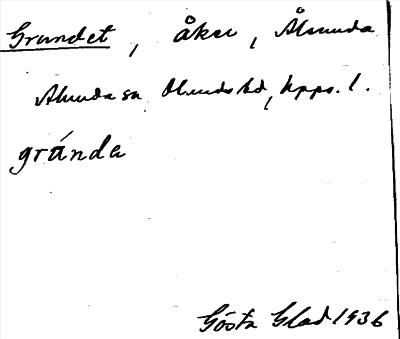 Grundet, åker, Ålsunda
Alunda sn Olands hd, Upps. l.
grúnda
Gösta Glad 1936